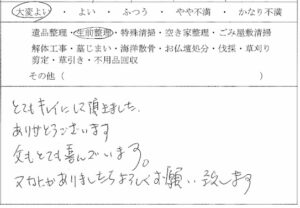 大変よい ・ よい ・ ふつう ・ やや不満 ・ かなり不満
遺品整理・生前整理・特殊清掃・空き家整理・ごみ屋敷清掃
解体工事・墓じまい・海洋散骨・お仏壇処分・伐採・草刈り
剪定・草引き・不用品回収
その他（　　　　　　　　　　）
とてもキレイにして頂ました。
ありがとうございます
父もとても喜んでいます。
又何かがありましたらよろしくお願い致します